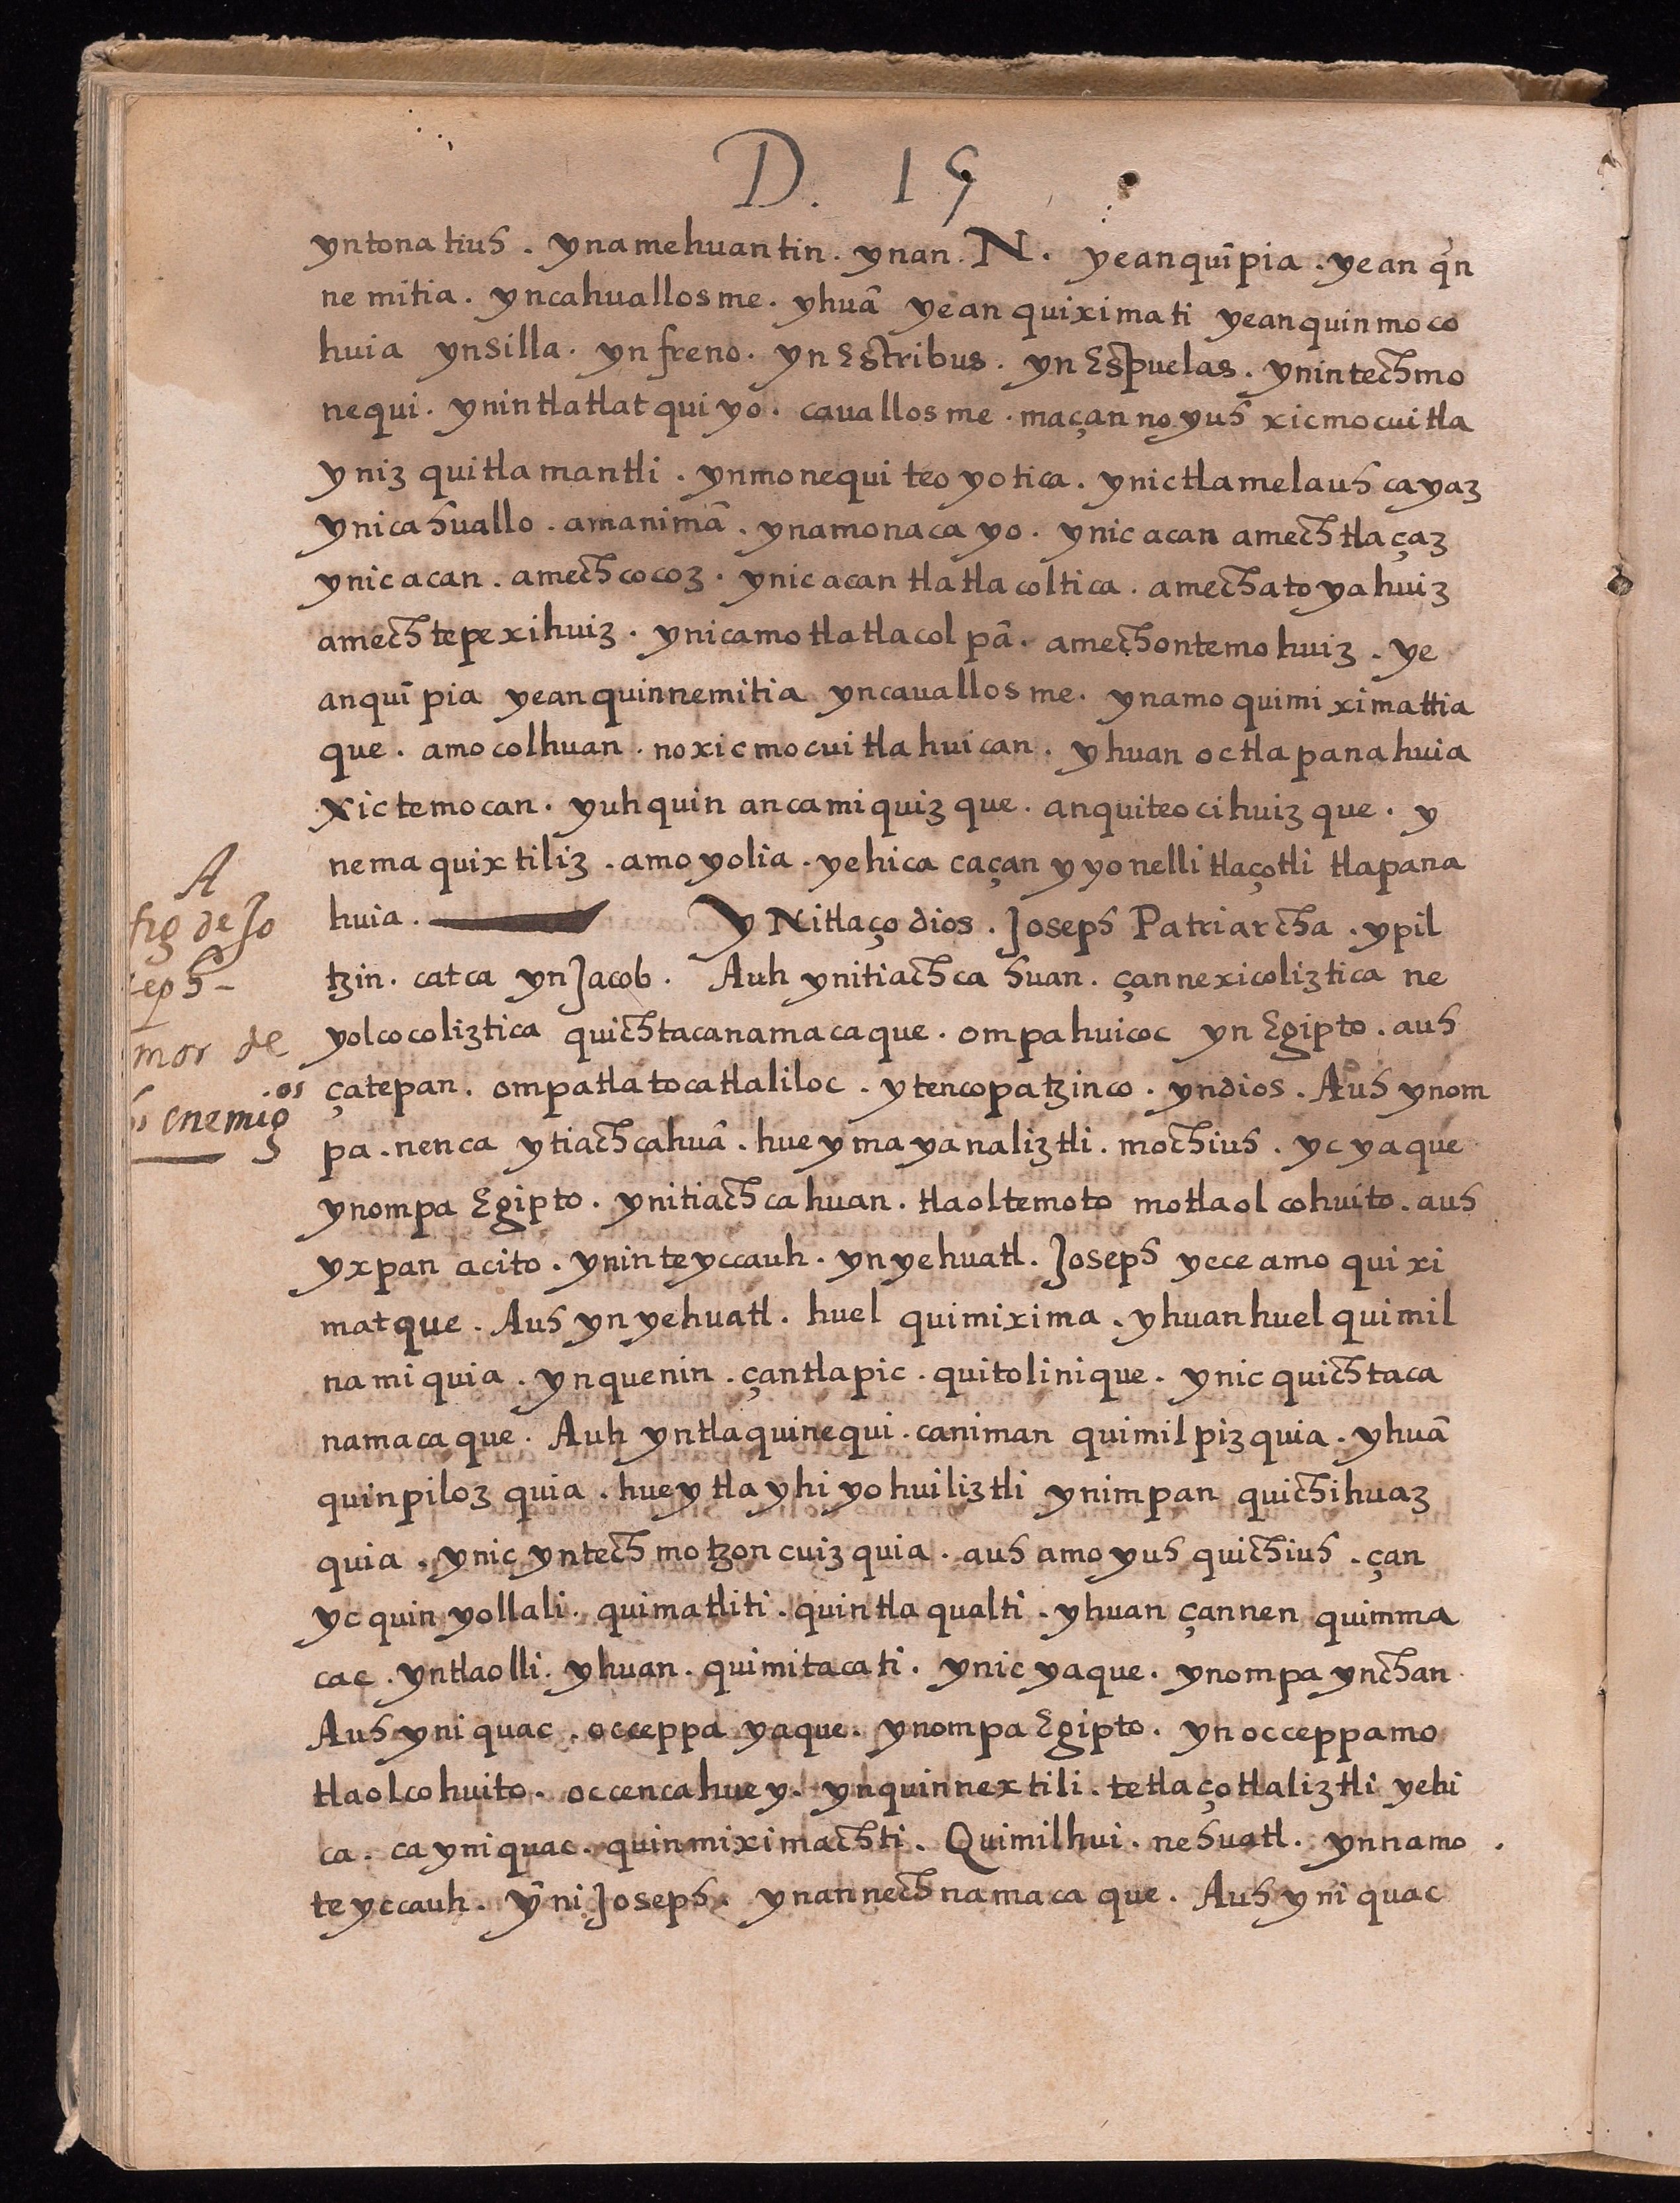 D. 19
yntonatiuh. ynamehuantin. ynan. N. yeanquīpia. yean q̇n
nemitia. yncahuallosme. yhuā yeanquiximati yeanquinmoco
huia ynsilla. ynfreno. yn Estribus. yn Espuelas. ynintechmo
nequi. ynintlatlatquiyo. cauallosme. maçannoyuh xicmocuitla
yniz quitlamantli. ynmonequi teoyotica. ynictlamelauhcayaz
ynicahuallo. amanimā. ynamonacayo. ynic acan amechtlaçaz
ynicacan. amechcocoz. ynicacan tlatlacoltica. amechatoyahuiz
amechtepexihuiz. ynicamotlatlacolpā. amechontemohuiz. ye
anquīpia yeanquinnemitia yncauallosme. ynamo quimiximattia
que. amocolhuan. noxicmocuitlahuican. yhuan octlapanahuia
xictemocan. yuhquin ancamiquizque. anquiteocihuizque. y
nemaquixtiliz. amoyolia. yehica caçan yyo nelli tlaçotli tlapana
huia. yNitlaço dios. Joseph Patriarcha. ypil
tzin. catca ynJacob. Auh ynitiachcahuan. çannexicoliztica ne
yolcocoliztica quichtacanamacaque. ompahuicoc yn Egipto. auh
çatepan. ompatlatocatlaliloc. ytencopatzinco. yndios. Auh ynom
pa. nenca ytiachcahuā. huey mayanaliztli. mochiuh. yc yaque
ynompa Egipto. ynitiachcahuan. tlaoltemoto motlaolcohuito. auh
yxpan acito. yninteyccauh. ynyehuatl. Joseph yece amo quixi
matque. Auh ynyehuatl. huel quimixima. yhuanhuelquimil
namiquia. ynquenin. çantlapic. quitolinique. ynic quichtaca
namacaque. Auh yntlaquinequi. caniman quimilpizquia. yhuā
quinpilozquia. huey tlayhiyohuiliztli ynimpan quichihuaz
quia. ynic yntechmotzoncuizquia. auh amoyuh quichiuh. çan
yc quinyollali. quimatliti. quintlaqualti. yhuan çannen quimma
cac. yntlaolli. yhuan. quimitacati. ynic yaque. ynompa ynchan
Auh yniquac. occeppa yaque. ynompa Egipto. ynocceppamo
tlaolcohuito. occencahuey. ynquinnextili. tetlaçotlaliztli yehi
ca. cayniquac. quinmiximachti. Quimilhui. nehuatl. ynnamo
teyccauh. ȳniJoseph. ynannechnamacaque. Auh yniquac
A
fig de Jo
seph-
mor de
s enemigos